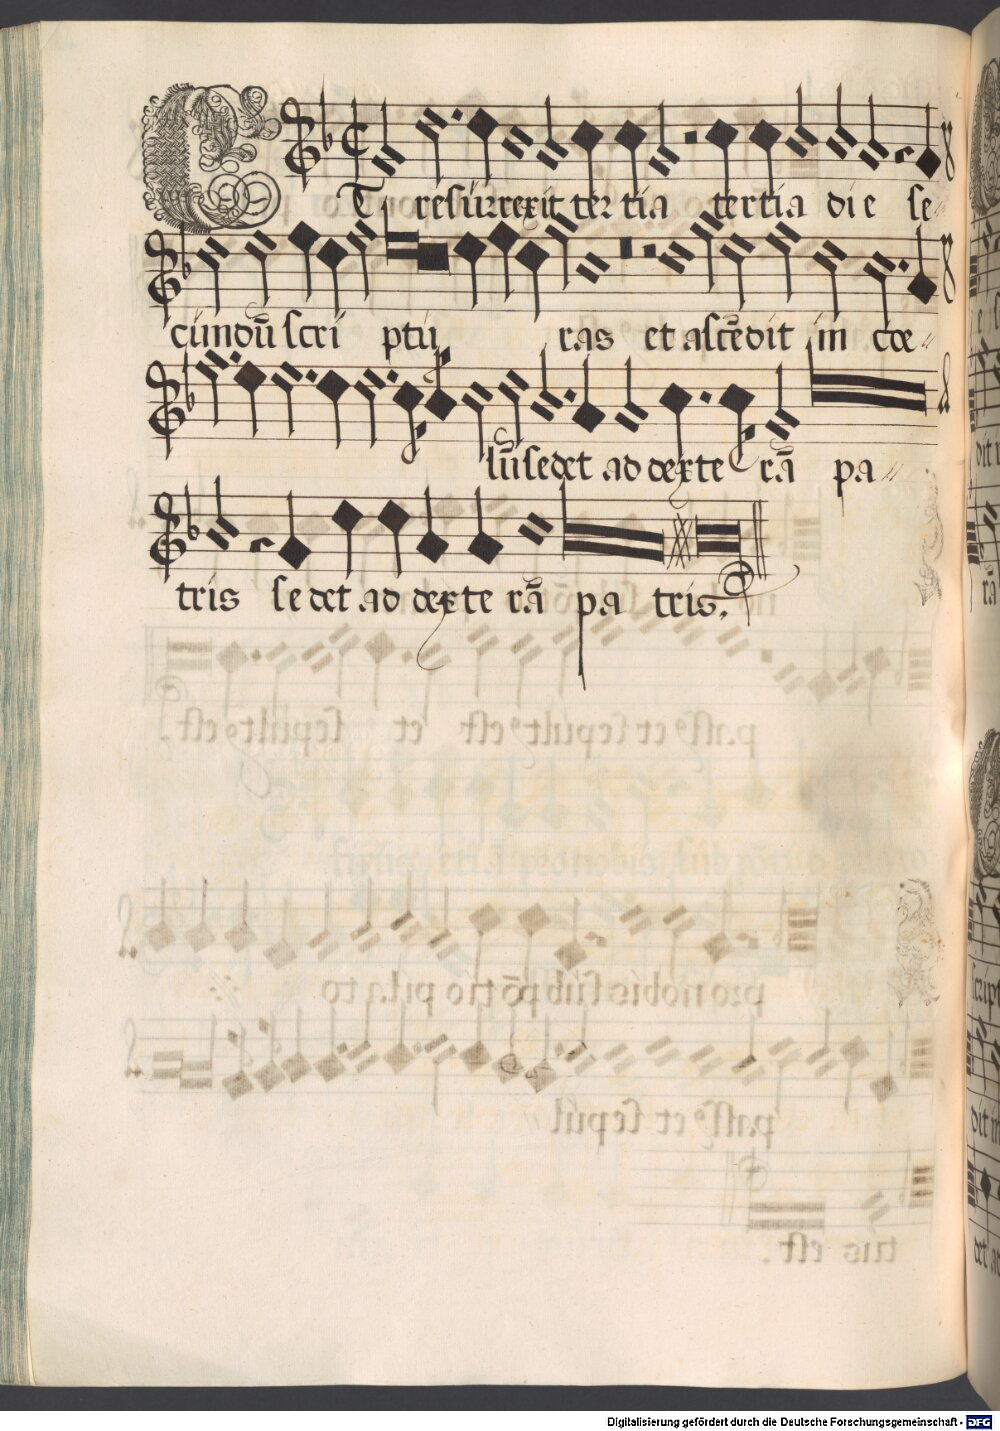 ET resurrexit tertia tertia die se〃
cundū scri ptu ras et ascēdit in coe〃
lū sedet ad dexte rā pa〃
tris sedet ad dexte rā pa tris.
Digitalisierung gefördert durch die Deutsche Forschungsgemeinschaft - DFG